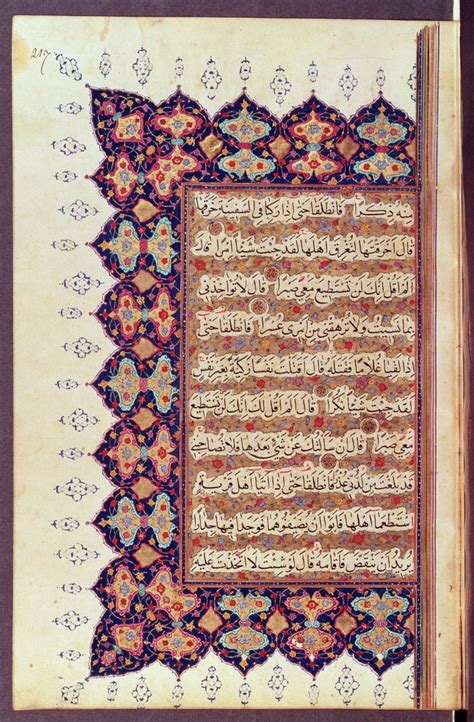 217
منه ذكرا فانطلقا حتى اذا ركبا فى السفينة خرقها
قال اخرقتها لتغرق اهلها لقد جئت شيئا امرا قال
الم اقل انك لن تستطيع معى صبرا قال لا تؤاخذنى
بما نسيت ولا ترهقنى من امرى عسرا فانطلقا حتى
اذا لقيا غلاما فقتله قال اقتلت نفسا زكية بغير نفس
لقد جئت شيئا نكرا قال الم اقل لك انك لن تستطيع
معى صبرا قال ان سالتك عن شئ بعدها فلا تصاحبنى
قد بلغت من لدنى عذرا فانطلقا حتى اذا اتيا اهل قرية
استطعما اهلها فابوا ان يضيفوهما فوجدا فيها جدارا
يريد ان ينقض فاقامه قال لو شئت لاتخذت عليه